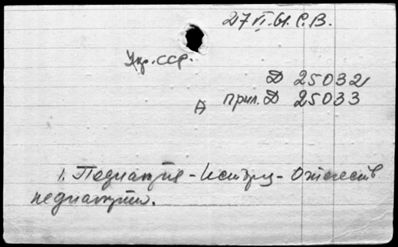 27 VI.61. С.В.
Укр. ССР.
Д 25032
А прил. Д 25033
1. Педиатрия - Истор. - Отечеств
педиатрия.